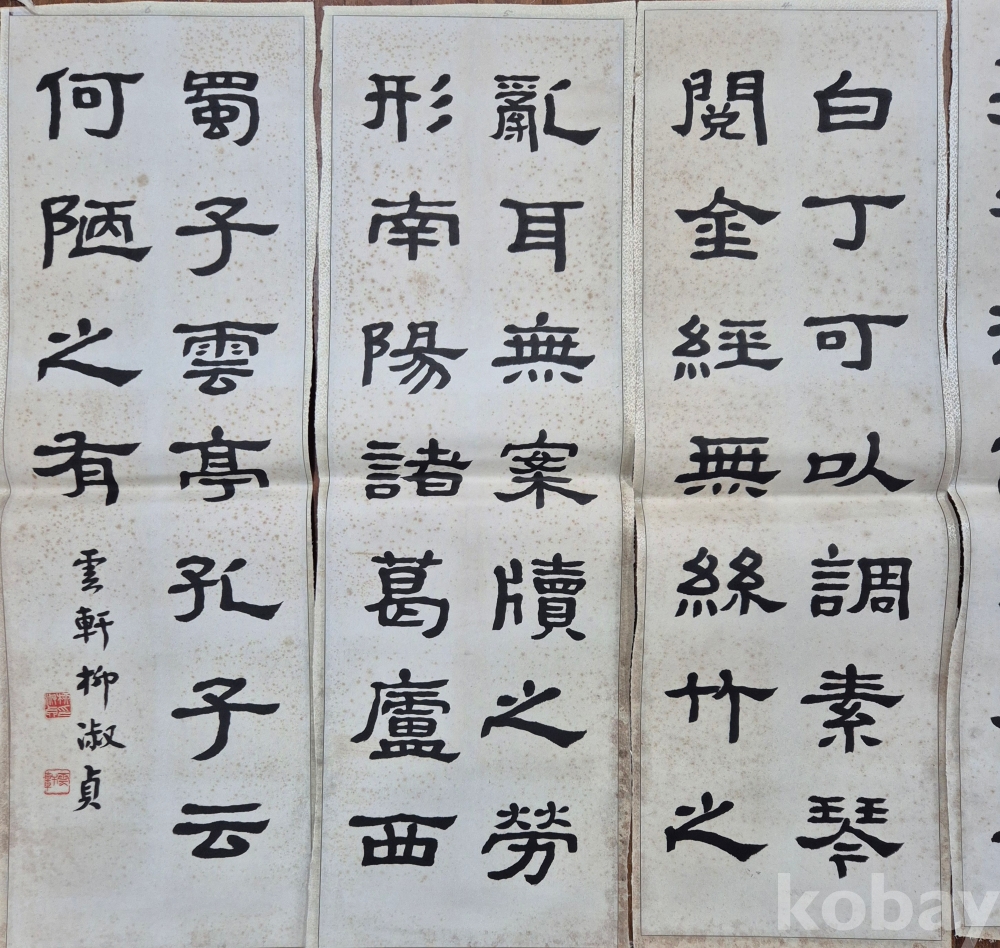 白丁可以調素琴
閱金經無絲竹之
亂耳無案牘之勞
形南陽諸葛廬西
蜀子雲亭孔子云
何陋之有
雲軒柳淑貞
kobay
4
5
6